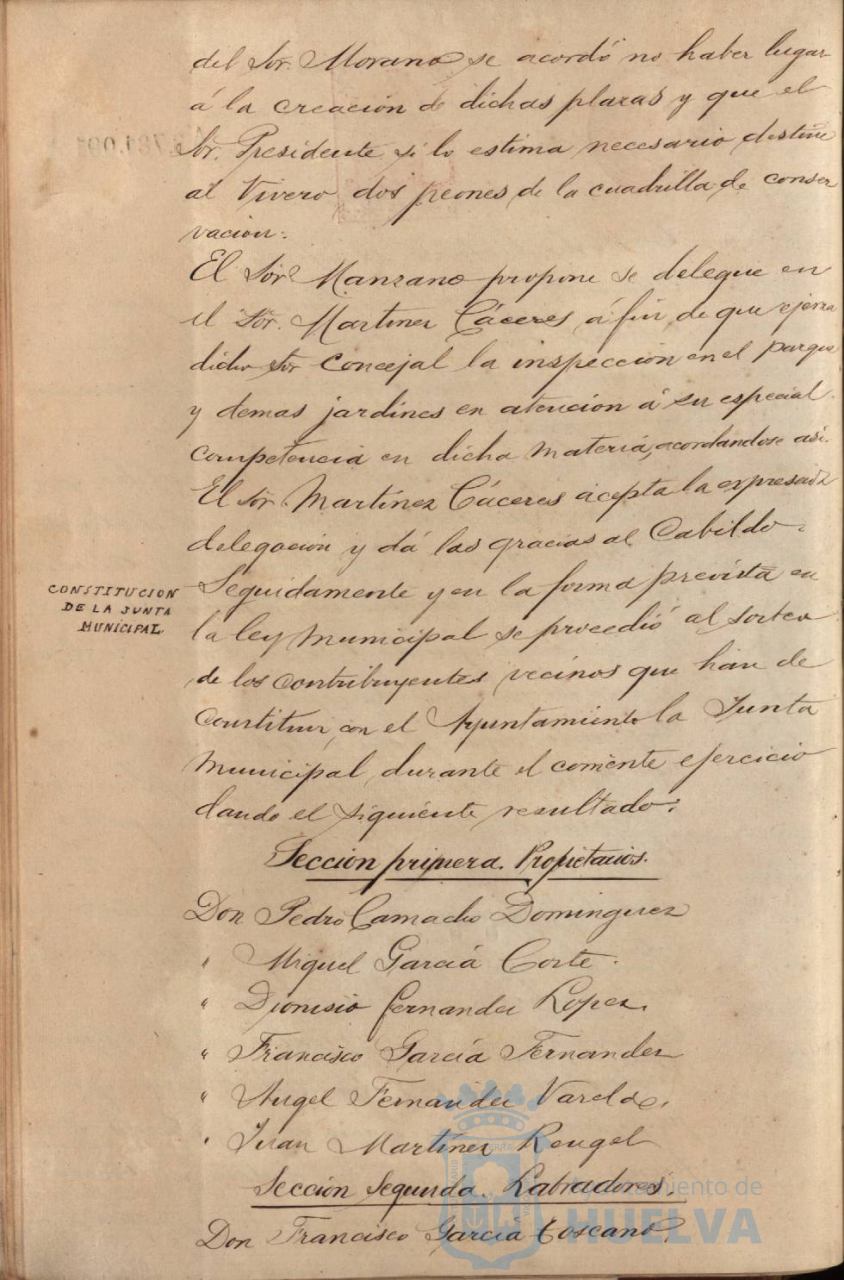 del Sor. Morano se acordó no haber lugar
á la creacion de dichas plazas y que el
Sor. Presidente si lo estima necesario destine
al Vivero dos peones de la cuadrilla de conser
vacion.
El Sor Manzano propone se delegue en
el Sor. Martinez Cáceres á fin de que ejerza
dicho Sor Concejal la inspección en el parque
y demas jardines en atencion á su especial
competencia en dicha materia, acordandose asi.
El Sor. Martínez Cáceres acepta la expresada
delegación y dá las gracias al Cabildo.
CONSTITUCION
DE LA JUNTA
MUNICIPAL.
Seguidamente y en la forma prevista en
la ley Municipal se procedió al sorteo
de los contribuyentes vecinos que han de
constituir con el Ayuntamiento la Junta
Municipal durante el corriente ejercicio
dando el siguiente resultado:
Seccion primera. Propietarios.
Don Pedro Camacho Dominguez
" Miguel García Corte.
" Dionisio Fernandez Lopez.
" Francisco García Fernandez
" Angel Fernandez Varela.
" Juan Martínez Rengel
Sección Segunda. Labradores.
Don Francisco García Toscano.
Ayuntamiento de
HUELVA